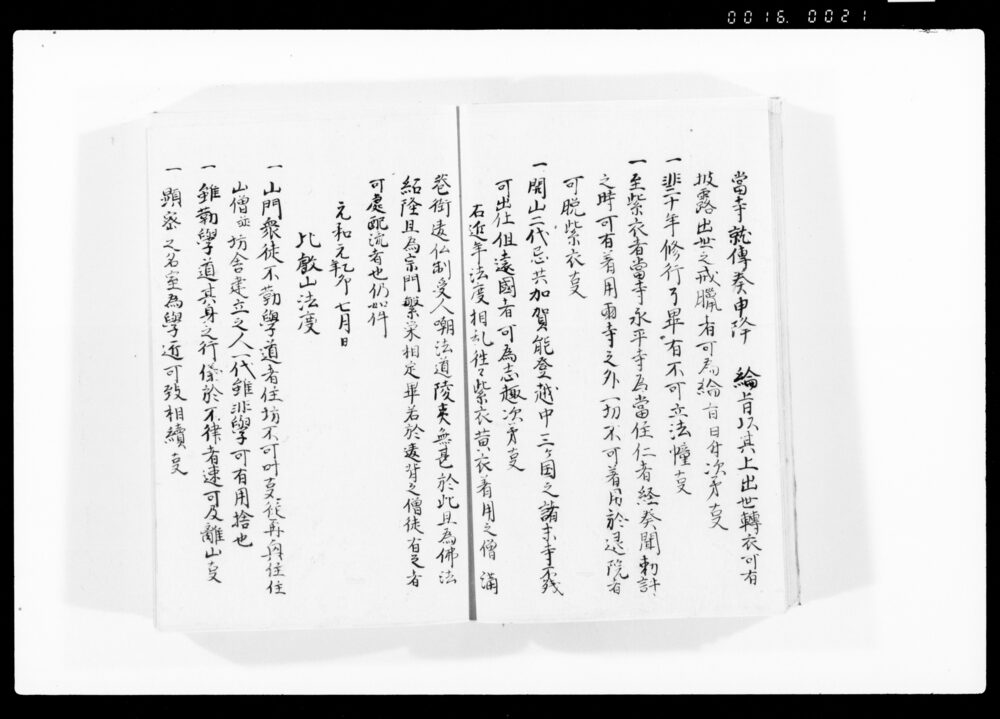 0016. 0021
當寺就傳奏申降　綸旨以其上出世轉衣可有
披露出世之戒臘者可為綸旨日付次第支
一 非二十年修行了畢有不可立法憧支
一 至紫衣者當寺永平寺為當住仁者経奏聞勅許
之時可有着用両寺之外一切不可着用於退院有
可脱紫衣支
一 開山二代忌共加賀能登越中三ヶ国之諸末寺不残
可出仕但遠國者可為志趣次第支
右近年法度相乱往々紫衣黄衣着用之僧 満
巷街違仏制受人嘲法道陵夷無甚於此且為佛法
紹隆且為宗門繁栄相定畢若於違背之僧徒有之者
可處配流者也仍如件
元和元乙卯年七月日
比叡山法度
一 山門衆徒不勤學道者住坊不可叶支従再興住住
山僧並坊舎建立之人一代雖非學可有用捨也
一 雖勤學道其身之行儀於不律者速可及離山支
一 顕密之名室為學近可致相續支